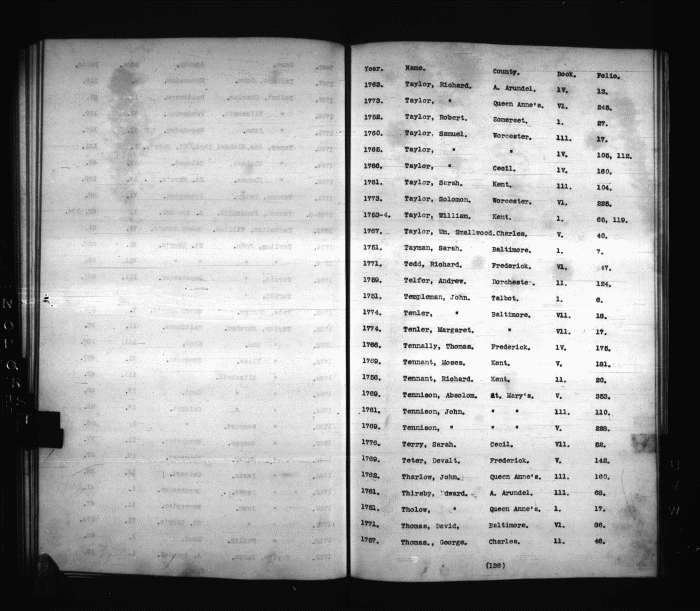 Year. Name. County. Book. Folio.
1763. Taylor, Richard. A. Arundel. 1V. 13.
1773. Taylor, " Queen Anne's. V1. 245.
1752. Taylor, Robert. Somerset. 1. 27.
1760. Taylor, Samuel. Worcester. 111. 17.
1765. Taylor, " " 1V. 105, 112.
1766. Taylor, " Cecil. 1V. 160.
1761. Taylor, Sarah. Kent. 111. 104.
1773. Taylor, Solomon. Worcester. V1. 225.
1753-4. Taylor, William. Kent. 1. 65, 119.
1767. Taylor, Wm. Smallwood.Charles. V. 40.
1751. Tayman, Sarah. Baltimore. 1. 7.
1771. Tedd, Richard. Frederick. V1. 47.
1759. Telfer, Andrew. Dorcheste. 11. 124.
1751. Templeman, John. Talbot. 1. 6.
1774. Tenler, " Baltimore. V11. 18.
1774. Tenler, Margaret. " V11. 17.
1766. Tennally, Thomas. Frederick. 1V. 175.
1769. Tennant, Moses. Kent. V. 181.
1756. Tennant, Richard. Kent. 11. 20.
1769. Tennison, Absolom. St. Mary's. V. 353.
1761. Tennison, John. " " 111. 110.
1769. Tennison, " " " V. 228.
1776. Terry, Sarah. Cecil. V11. 52.
1769. Teter, Devalt. Frederick. V. 142.
1762. Tharlow, John. Queen Anne's. 111. 160.
1761. Thirsby, Edward. A. Arundel. 111. 68.
1751. Tholow, " Queen Anne's. 1. 17.
1771. Thomas, David. Baltimore. V1. 86.
1757. Thomas., George. Charles. 11. 46.
(136)
N O P Q R
U V W